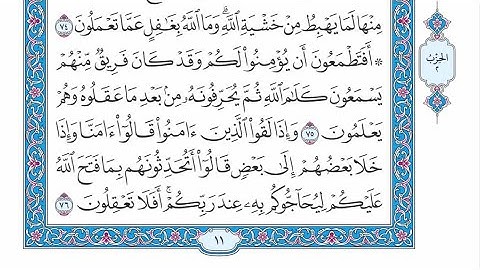 مِنْهَا لَمَا يَهْبِطُ مِنْ خَشْيَةِ ٱللَّهِۗ وَمَا ٱللَّهُ بِغَٰفِلٍ عَمَّا تَعْمَلُونَ ٧٤
۞ أَفَتَطْمَعُونَ أَن يُؤْمِنُوا۟ لَكُمْ وَقَدْ كَانَ فَرِيقٌ مِّنْهُمْ
يَسْمَعُونَ كَلَٰمَ ٱللَّهِ ثُمَّ يُحَرِّفُونَهُۥ مِنۢ بَعْدِ مَا عَقَلُوهُ وَهُمْ
يَعْلَمُونَ ٧٥ وَإِذَا لَقُوا۟ ٱلَّذِينَ ءَامَنُوا۟ قَالُوٓا۟ ءَامَنَّا وَإِذَا
خَلَا بَعْضُهُمْ إِلَىٰ بَعْضٍ قَالُوٓا۟ أَتُحَدِّثُونَهُم بِمَا فَتَحَ ٱللَّهُ
عَلَيْكُمْ لِيُحَآجُّوكُم بِهِۦ عِندَ رَبِّكُمْۚ أَفَلَا تَعْقِلُونَ ٧٦
١١
الحزب
٢